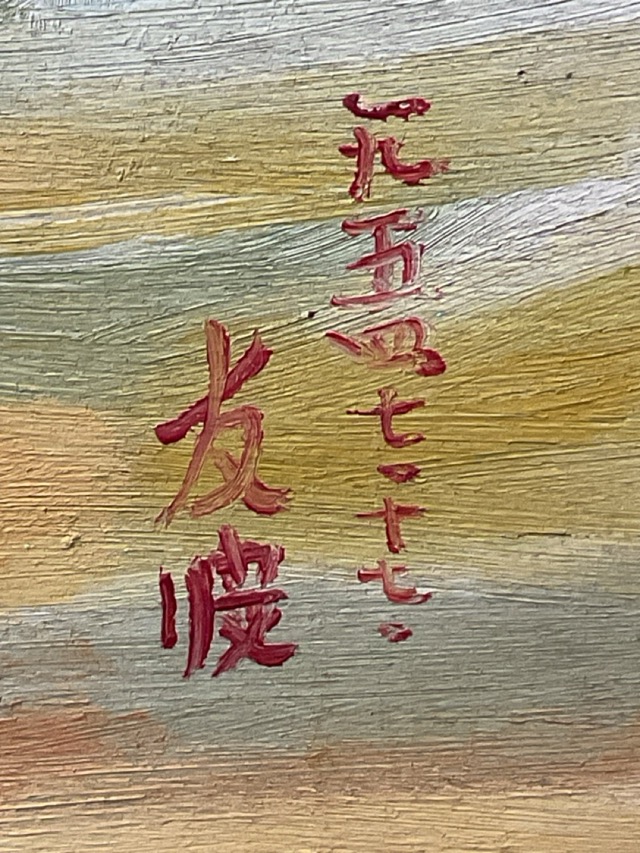 一九五四七·十七·
友波